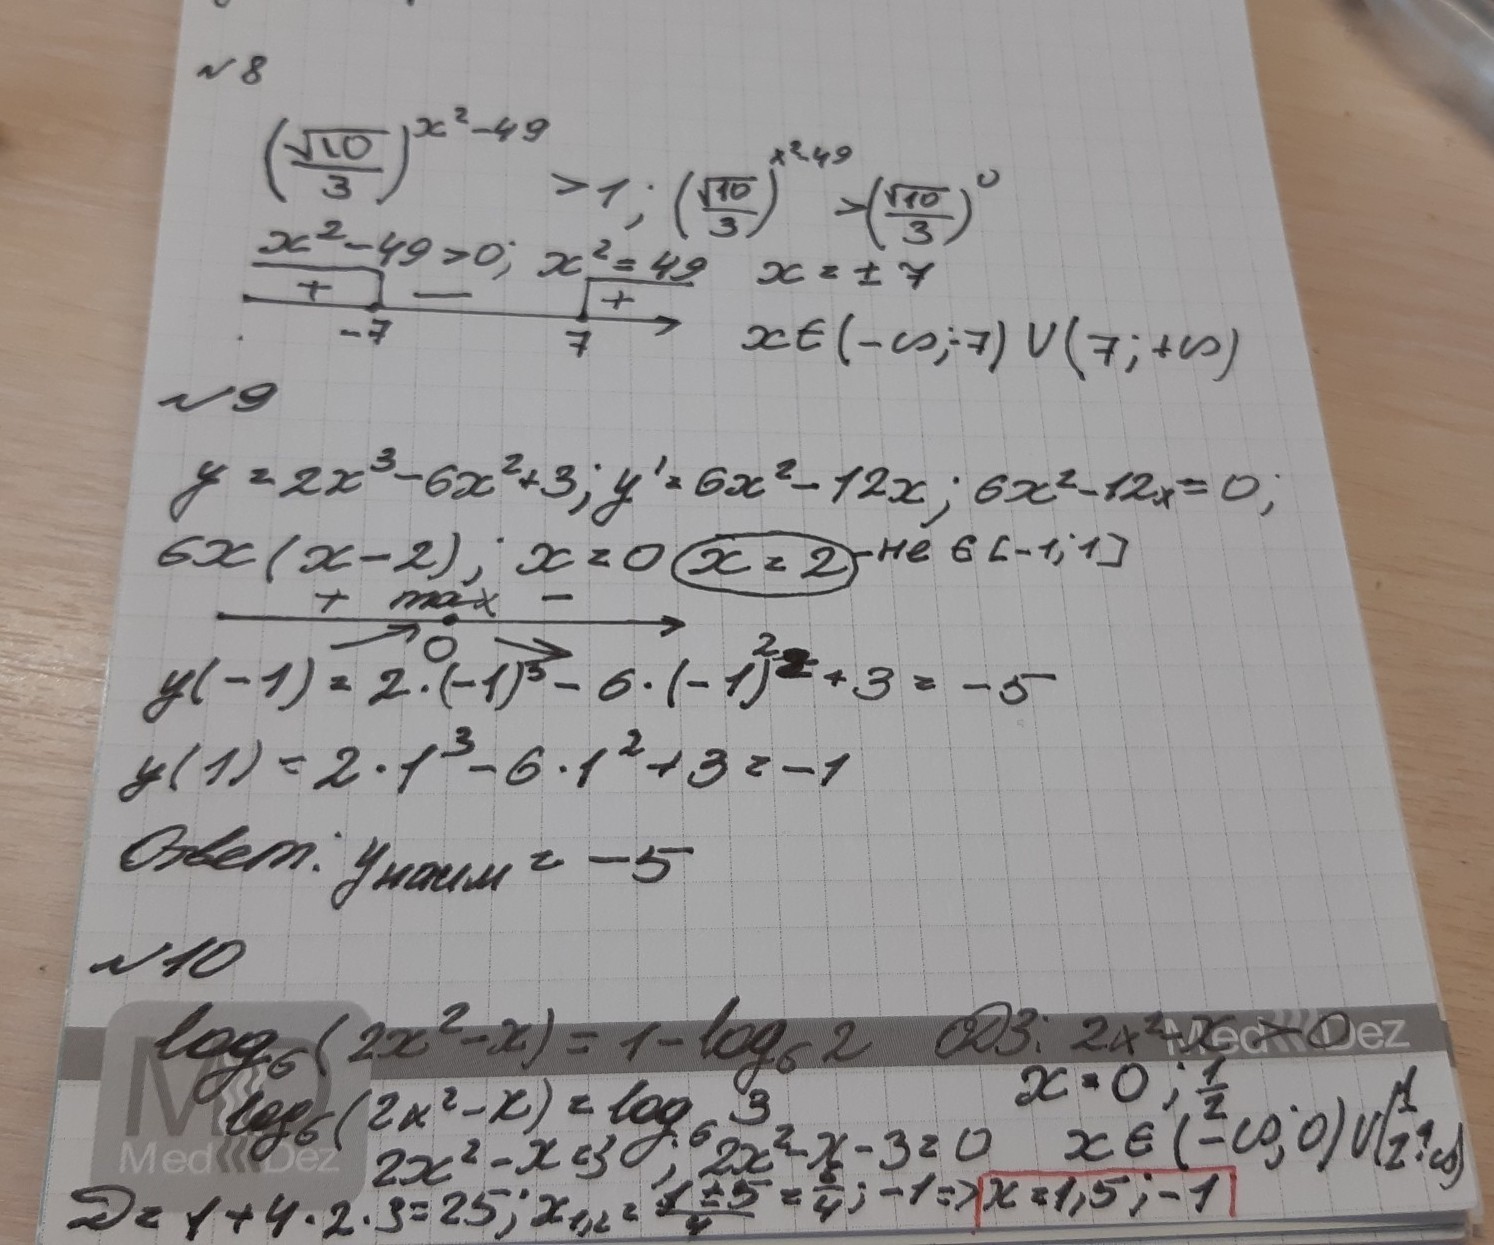 №8
(√10/3)^(x²-49) > 1; (√10/3)^(x²-49) > (√10/3)^0
x²-49>0; x²=49 x=±7
+ — +
-7 7 x∈(-∞;-7)∪(7;+∞)
№9
y=2x³-6x²+3; y'=6x²-12x; 6x²-12x=0;
6x(x-2); x=0 x=2 -не ∈[-1;1]
+ max -
0
y(-1)=2·(-1)³-6·(-1)²+3=-5
y(1)=2·1³-6·1²+3=-1
Ответ: yнаим=-5
№10
log₆(2x²-x)=1-log₆2 ОДЗ: 2x²-x>0
x=0; 1/2
log₆(2x²-x)=log₆3
2x²-x=3; 2x²-x-3=0 x∈(-∞;0)∪(1/2;+∞)
D=1+4·2·3=25; x₁,₂=(1±5)/4=6/4; -1=>x=1,5; -1
MedDez
MedDez